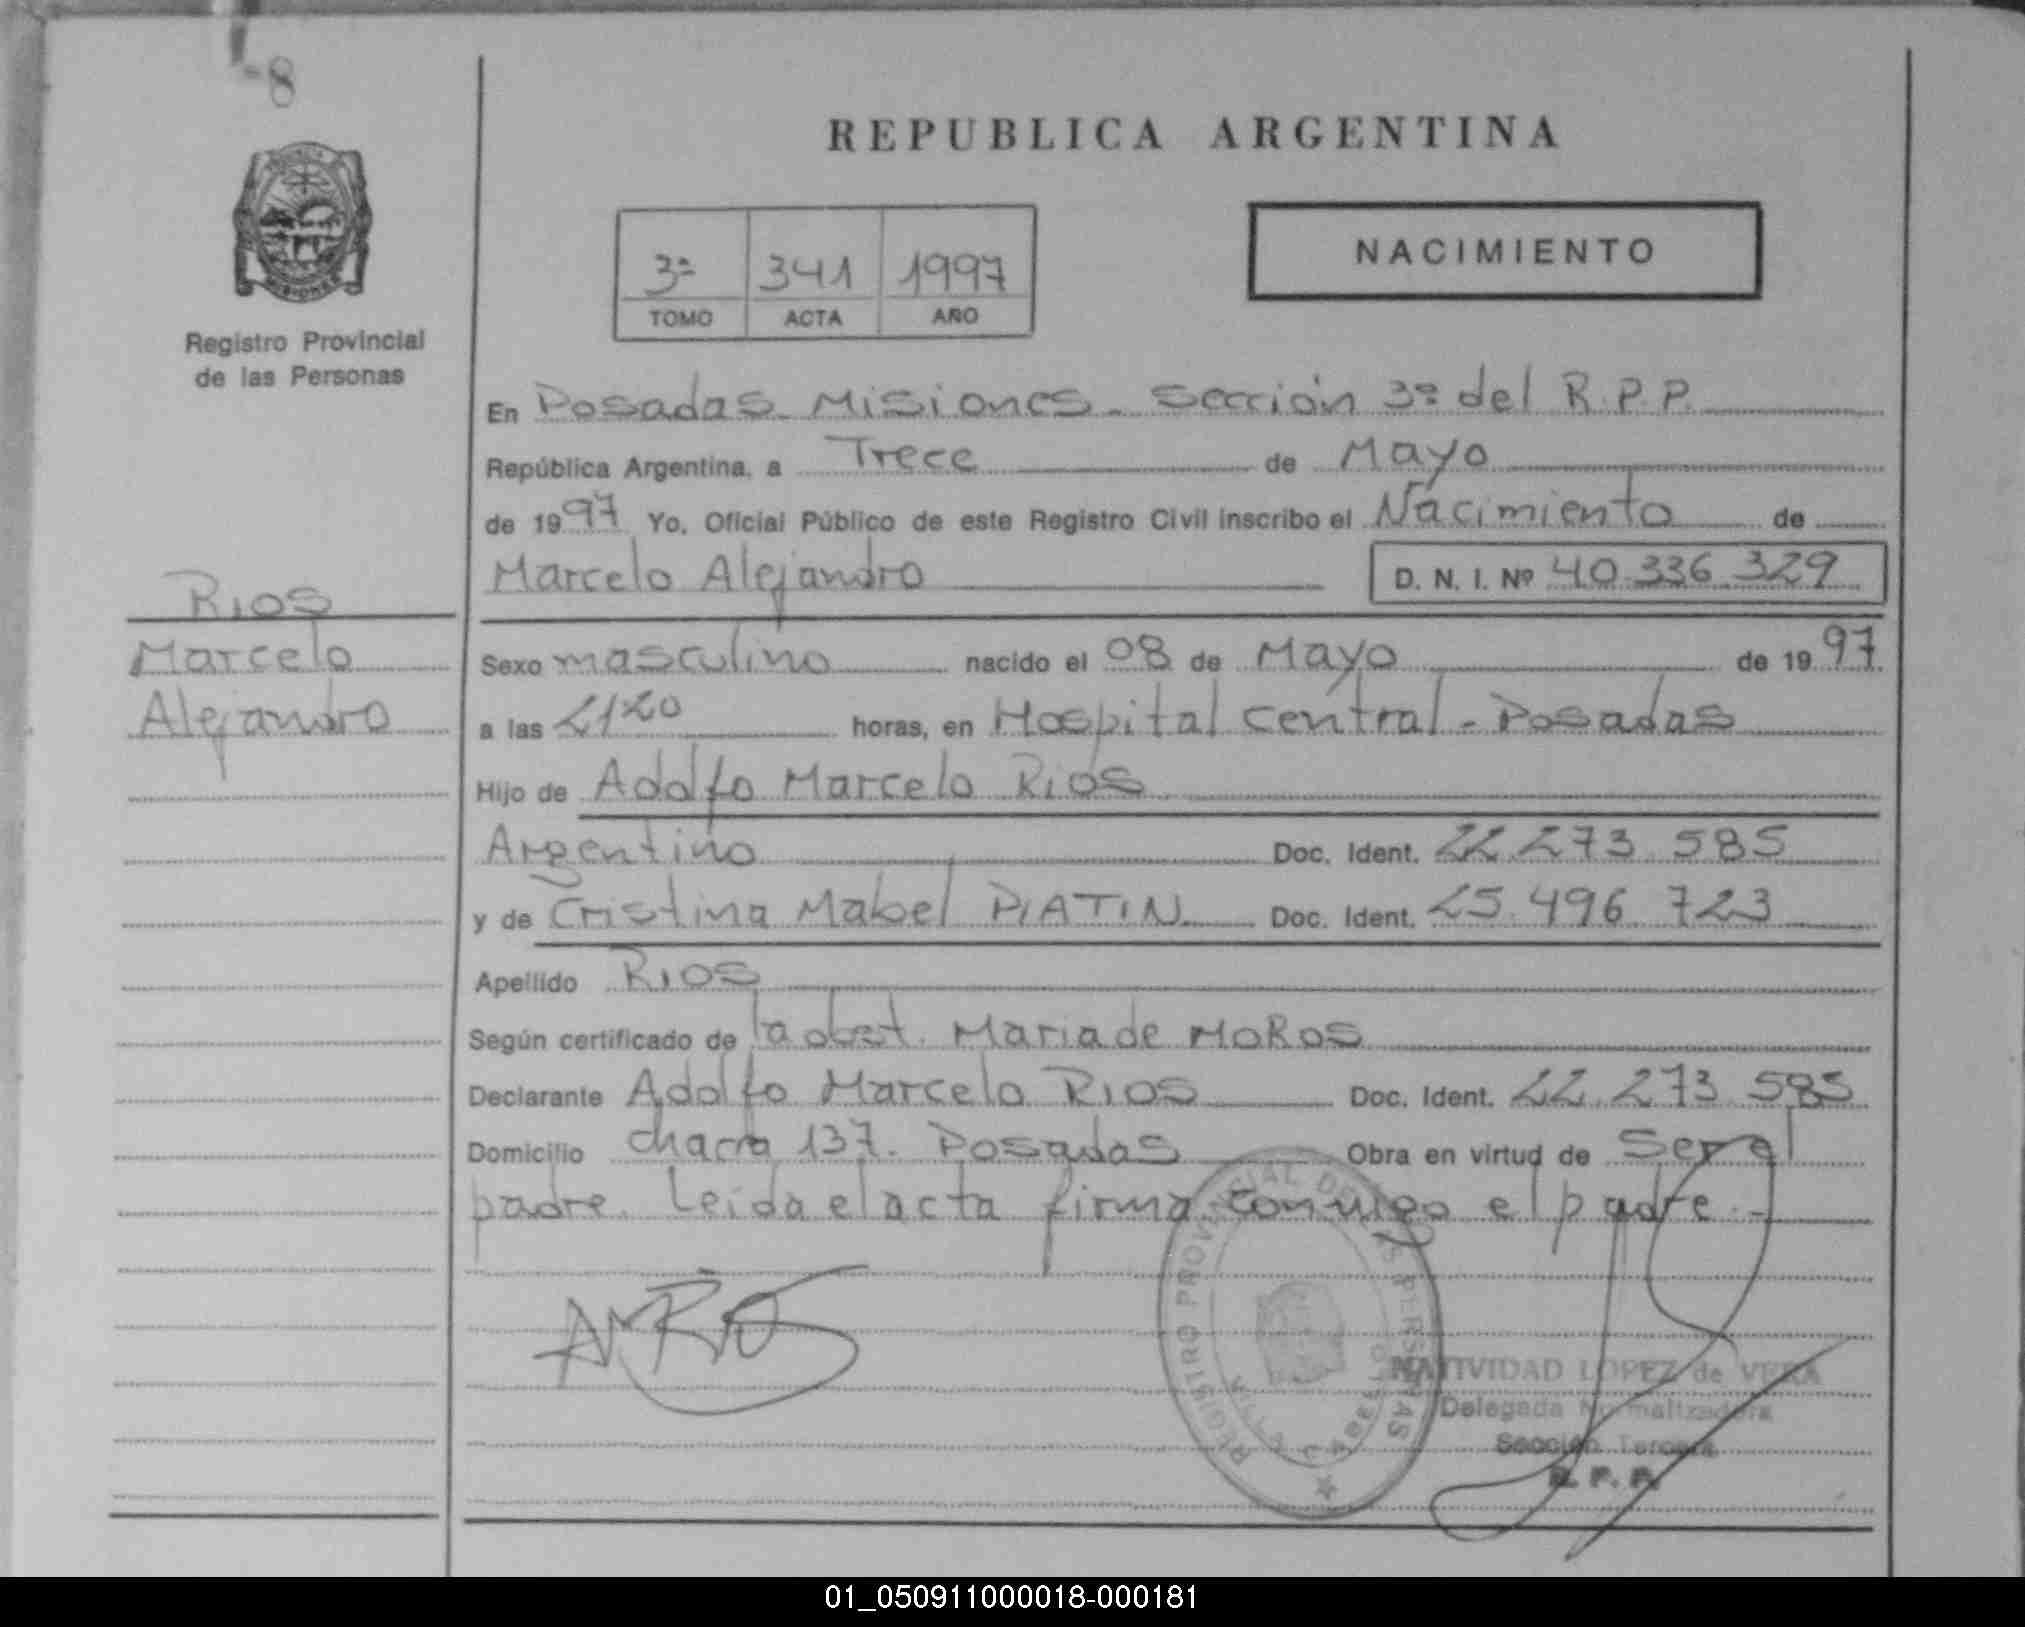 -8
REPUBLICA ARGENTINA
Registro Provincial
de las Personas
3ª 341 1997
TOMO ACTA AÑO
NACIMIENTO
En Posadas Misiones. Sección 3ª del R.P.P.
República Argentina, a Trece de Mayo
de 1997 Yo, Oficial Público de este Registro Civil inscribo el Nacimiento de
Marcelo Alejandro D. N. I. Nº 40.336.329
RIOS
Marcelo
Alejandro
Sexo masculino nacido el 08 de Mayo de 1997
a las 2120 horas, en Hospital Central - Posadas
Hijo de Adolfo Marcelo Rios
Argentino Doc. Ident. 22.273.585
y de Cristina Mabel PIATIN Doc. Ident. 25.496.723
Apellido RIOS
Según certificado de la obst. Maria de MOROS
Declarante Adolfo Marcelo RIOS Doc. Ident. 22.273.585
Domicilio chacra 137. Posadas Obra en virtud de ser el
padre. Leida el acta firma conmigo el padre.-
REGISTRO PROVINCIAL DE LAS PERSONAS
NATIVIDAD LOPEZ de VERA
Delegada Normalizadora
Sección Tercera
R. P. P.
01_050911000018-000181